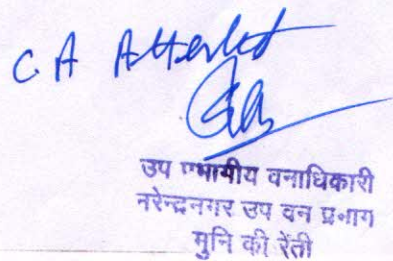 C. A Attested
उप प्रभागीय वनाधिकारी
नरेन्द्रनगर उप वन प्रभाग
मुनि की रेती